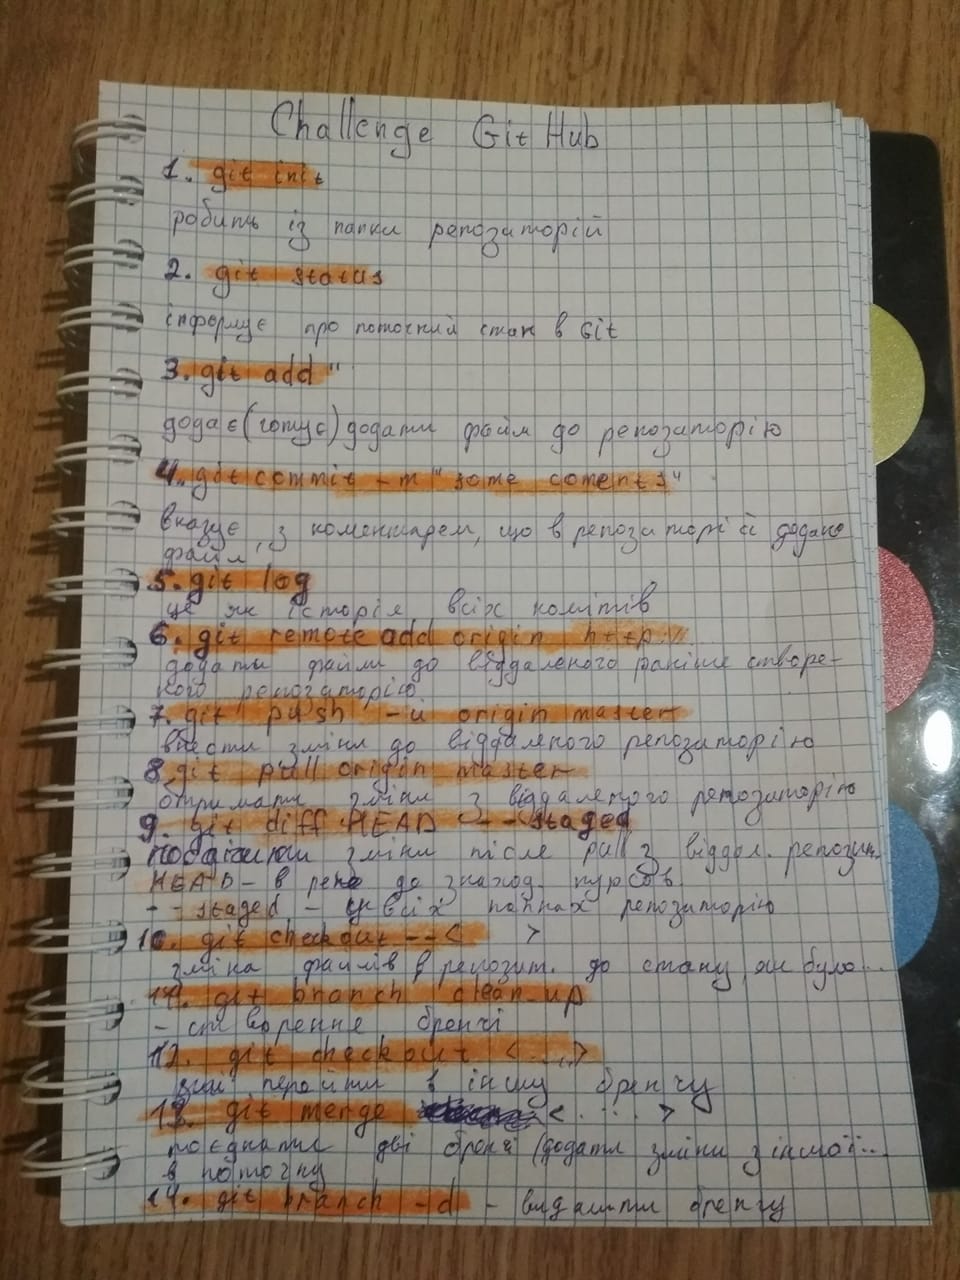 Challenge GitHub
1. git init
робить із папки репозиторій
2. git status
інформує про поточний стан в Git
3. git add "
додає (готує) додати файл до репозиторію
4. git commit -m "some coments"
вказує, з коментарем, що в репозиторій додано
файл
5. git log
це як історія всіх комітів
6. git remote add origin http://
додати файли до віддаленого раніше створе-
ного репозиторію.
7. git push -u origin master
внести зміни до віддаленого репозиторію
8. git pull origin master
отримати зміни з віддаленого репозиторію
9. git diff HEAD --staged
зміни після pull з віддал. репозит.
HEAD - в де знаход. курсов
-- staged - в всіх папках репозиторію
10. git checkout -- < >
зміна файлів в репозит. до стану, як було...
11. git branch clean_up
- створення бренчі
12. git checkout <....>
перейти в іншу бренчу
13. git merge <....>
поєднати дві бренчі (додати зміни з іншої...
в поточну
14. git branch -d - видалити бренчу